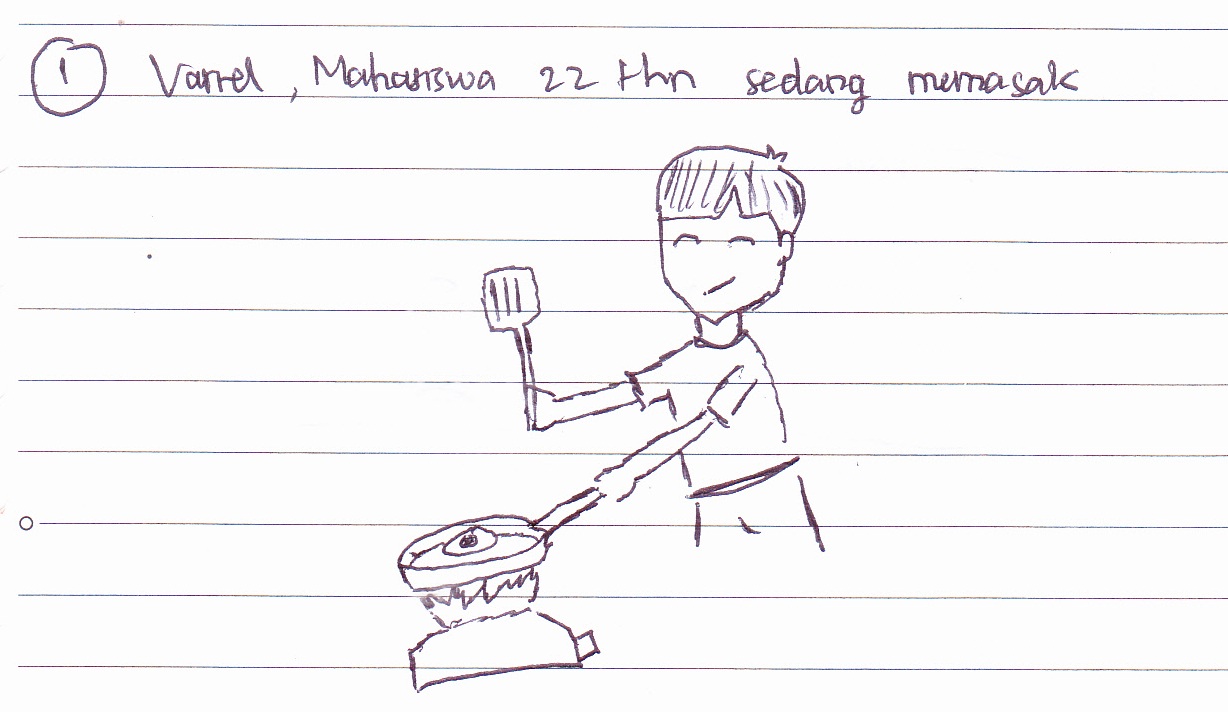 1 Varrel, Mahasiswa 22 thn sedang memasak